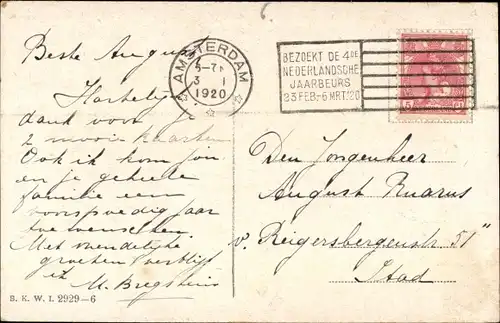 Beste August
Hartelijk
dank voor
2 mooie kaarten
Ook ik kom jou
en je geheele
familie een
voorspoedig jaar
toewenschen.
Met vriendelijke
groeten verblijf
ik
M. Bregstein
B. K. W. I. 2929-6
AMSTERDAM
3 I
1920
BEZOEKT DE 4DE
NEDERLANDSCHE
JAARBEURS
23 FEB.-6 MRT. '20
5
Den Jongenheer
August Ruarus
v. Reigersbergenstr 51"
Stad